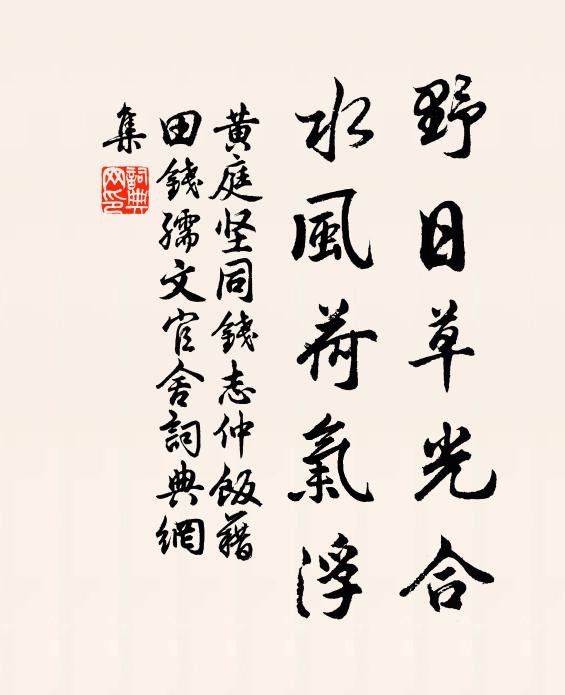 野日草光合
水風荷氣浮
黄庭坚同錢志仲飯藉
田錢孺文官舍詞典網
集
詞典网印